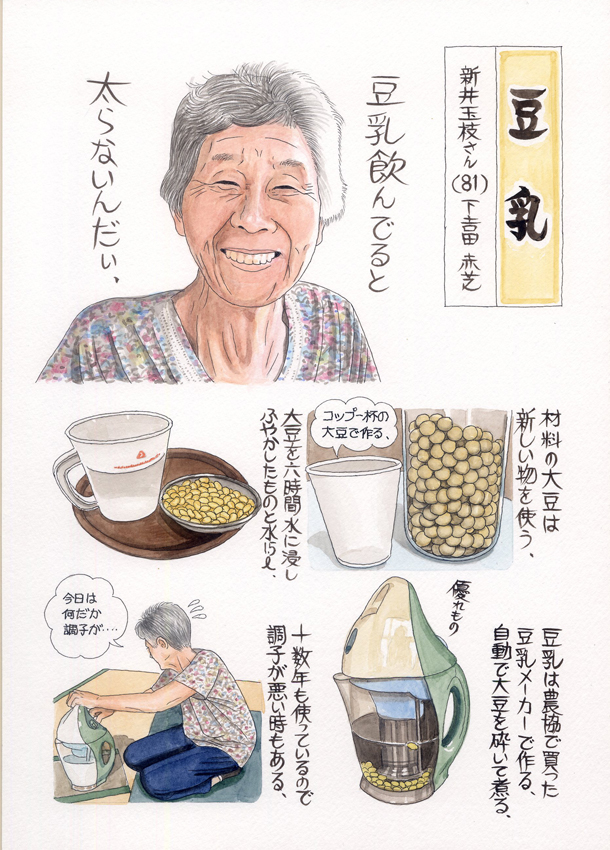 豆乳
新井玉枝さん(81)下吉田 赤芝
豆乳飲んでると
太らないんだぃ、
材料の大豆は
新しい物を使う、
コップ一杯の
大豆で作る、
大豆を六時間水に浸し
ふやかしたものと水1.5ℓ、
豆乳は農協で買った
豆乳メーカーで作る、
自動で大豆を砕いて煮る、
優れもの
十数年も使っているので
調子が悪い時もある、
今日は
何だか
調子が‥‥